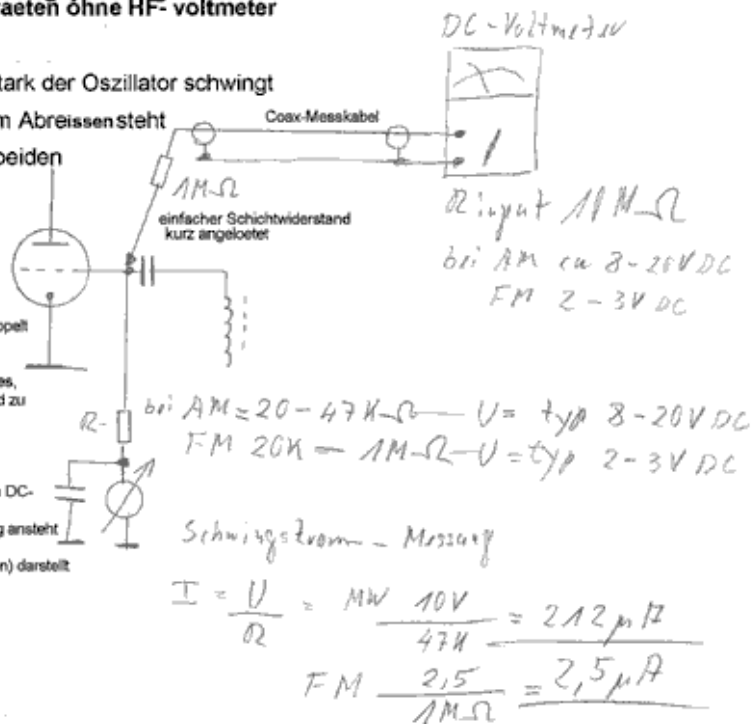 aeten ohne HF- voltmeter
DC-Voltmeter
tark der Oszillator schwingt
m Abreissen steht
Coax-Messkabel
beiden
1MΩ
einfacher Schichtwiderstand
kurz angeloetet
R input 11 MΩ
bei AM ca 8-20V DC
FM 2-3V DC
oppelt
es,
d zu
R-
bei AM=20-47KΩ — U= typ 8-20V DC
FM 20K - 1MΩ - U=typ 2-3V DC
DC-
g ansteht
n) darstellt
Schwingstrom - Messung
I = U/R = MW 10V/47K = 212µA
FM 2,5/1MΩ = 2,5µA